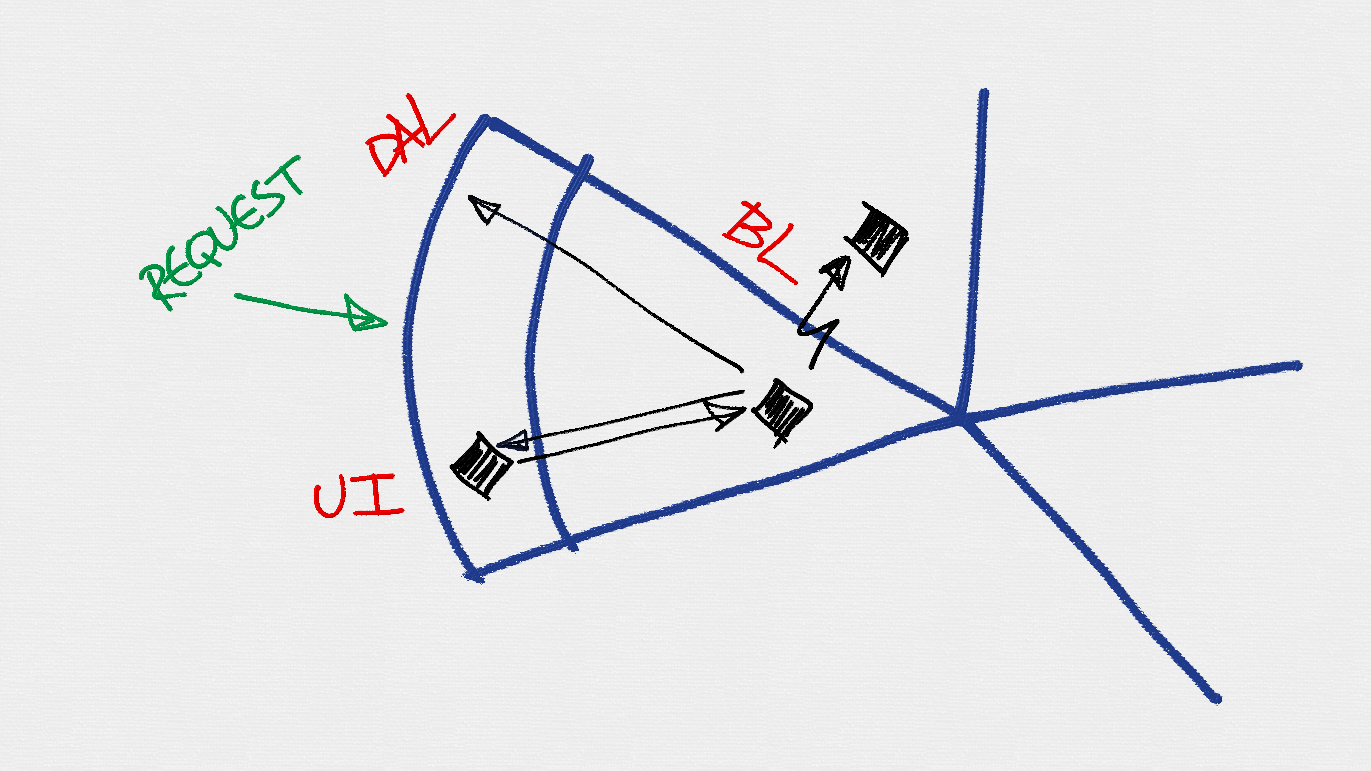 DAL
REQUEST
BL
UI